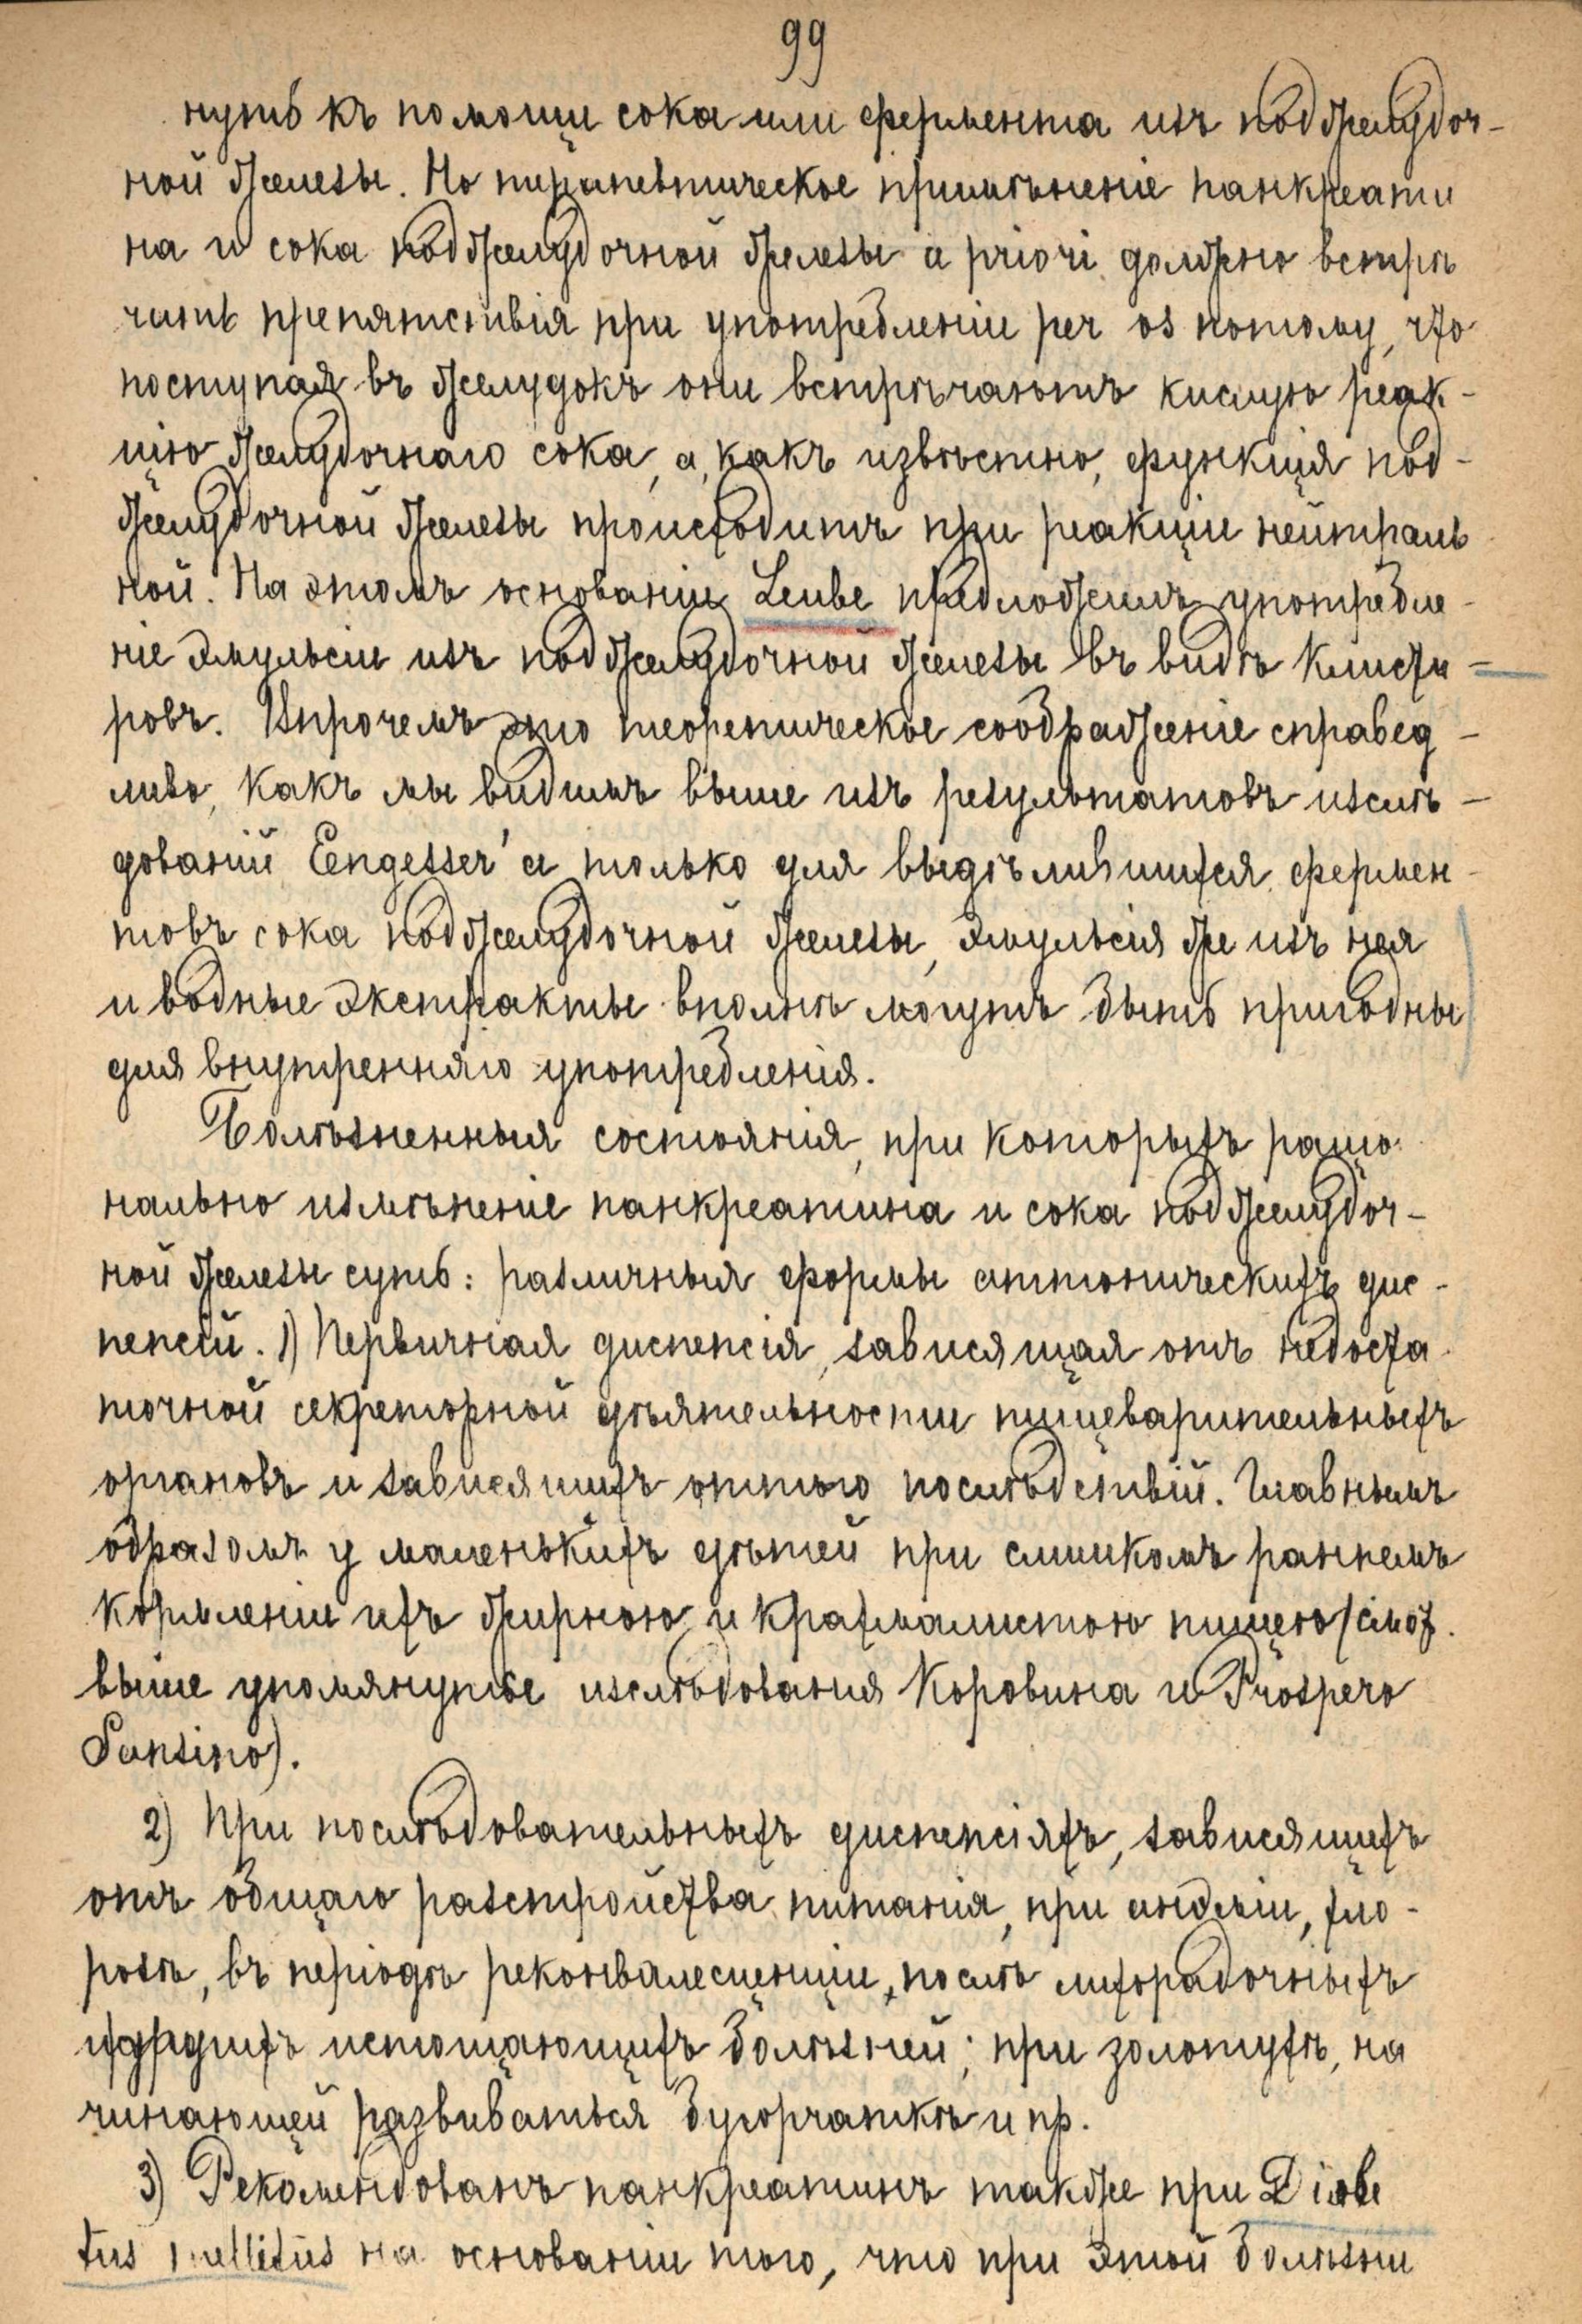 99
нуть къ помощи сока или фермента изъ поджелудоч-
ной железы. Но терапевтическое примѣненіе панкреати
на и сока поджелудочной железы a priori должно встрѣ
чать препятствія при употребленіи per os потому, что
поступая въ желудокъ они встрѣчаютъ кислую реак-
цію желудочнаго сока, а, какъ извѣстно, функція под-
желудочной железы происходитъ при реакціи нейтраль
ной. На этомъ основаніи Leube предложилъ употребле-
ніе эмульсіи изъ поджелудочной железы въ видѣ клисти-
ровъ. Впрочемъ это теоретическое соображеніе справед-
ливо, какъ мы видимъ выше изъ результатовъ изслѣ-
дованій Eengesser'а только для выдѣлившихся фермен-
товъ сока поджелудочной железы, эмульсія же изъ нея
и водные экстракты вполнѣ могутъ быть пригодны
для внутренняго употребленія.
Болѣзненныя состоянія, при которыхъ раціо-
нально измѣненіе панкреатина и сока поджелудоч-
ной железы суть: различныя формы аттоническихъ дис-
пепсій. 1) Первичная диспепсія, зависящая отъ недоста-
точной секреторной дѣятельности пищеварительныхъ
органовъ и зависящихъ оттого послѣдствій. Главнымъ
образомъ у маленькихъ дѣтей при слишкомъ раннемъ
кормленіи ихъ жирною и крахмалистою пищею (смот.
выше упомянутые изслѣдованія Коровина и Prospero
Sonsino).
2) При послѣдовательныхъ диспепсіяхъ, зависящихъ
отъ общаго разстройства питанія, при анэміи, хло-
розѣ, въ періодѣ реконвалесценціи, послѣ лихорадочныхъ
и другихъ истощающихъ болѣзней; при золотухѣ, на
чинающей развиваться бугорчаткѣ и пр.
3) Рекомендованъ панкреатинъ также при Diabe
tus mellitus на основаніи того, что при этой болѣзни